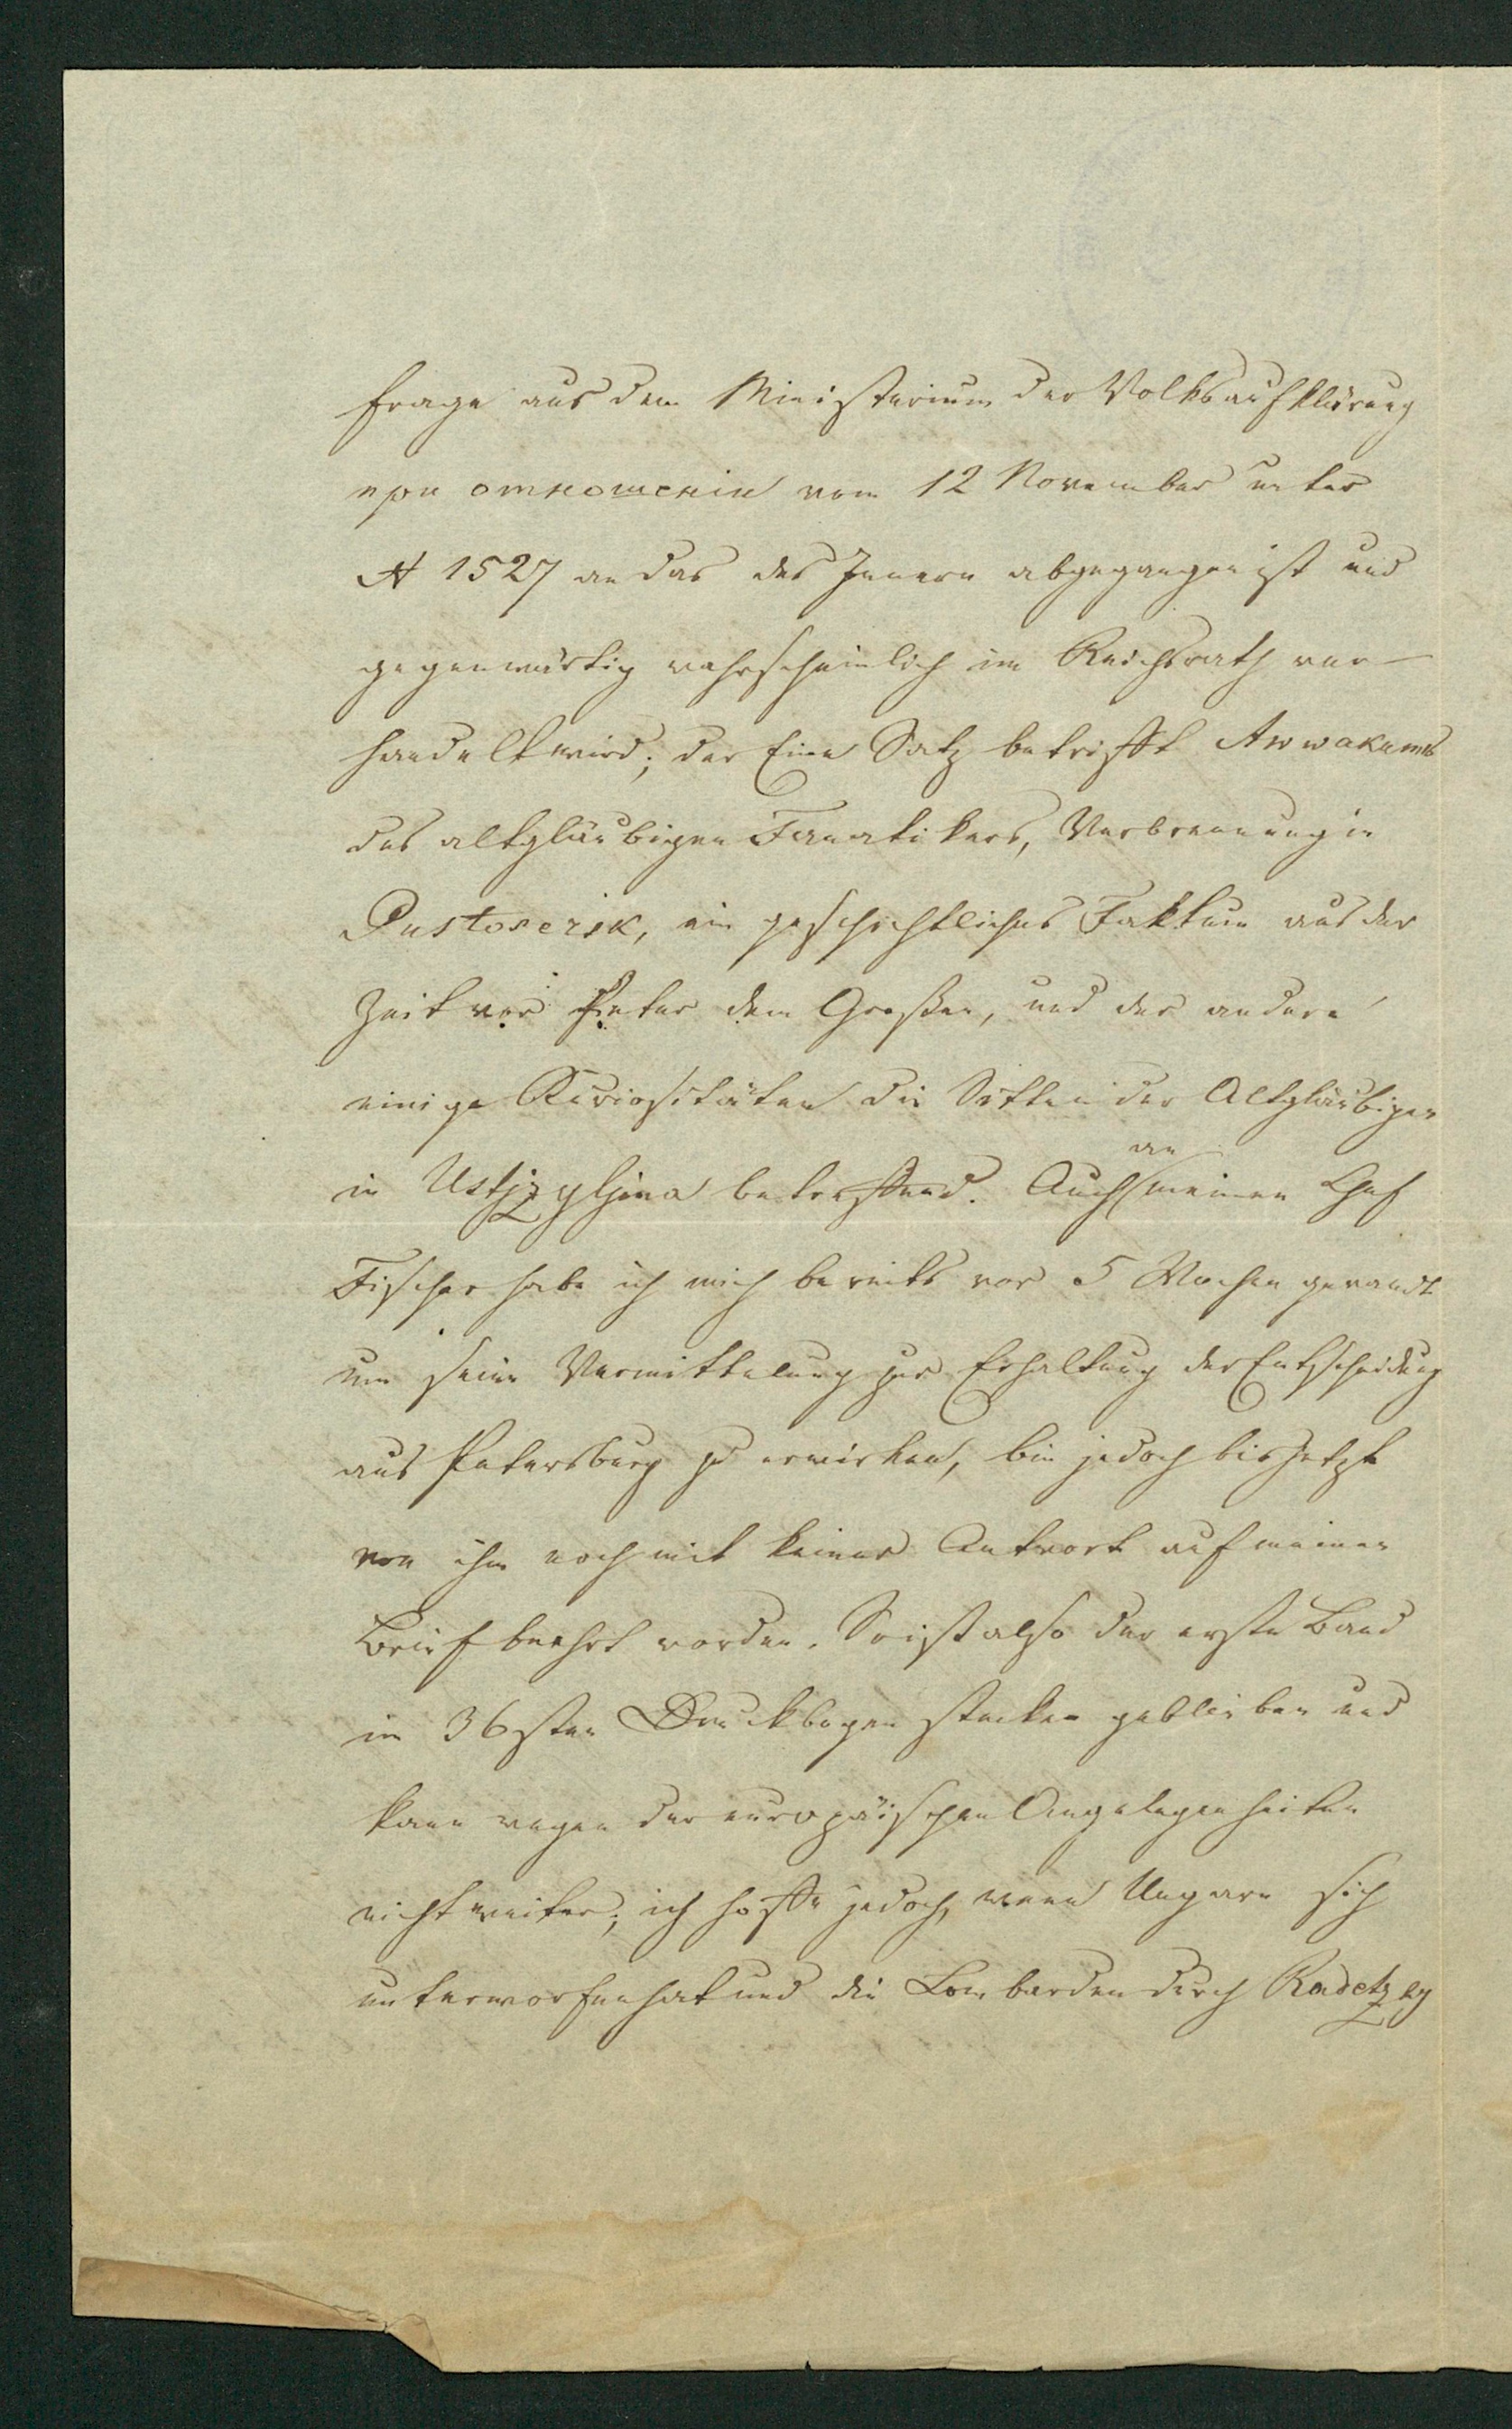 frage aus dem Ministerium der Volksaufklärung
при отношенiи vom 12 November unter
№ 1527 an das des Innern abgegangen ist und
gegenwärtig wahrscheinlich im Reichsrath ver-
handelt wird; der Eine Satz betrifft Awwakums
des altgläubigen Fanatikers, Verbrennung in
Pustosersk, ein geschichtliches Faktum aus der
Zeit vor Peter dem Großen, und der andere
einige Curiositäten die Sitten der Altgläubigen
in Ustjzyljma betreffend. Auch an meinen Chef
Fischer habe ich mich bereits vor 5 Wochen gewandt
um seine Vermittelung zur Erhaltung der Entscheidung
aus Petersburg zu erwirken, bin jedoch bis jetzt
von ihm noch mit keiner Antwort auf meinen
Brief beehrt worden. So ist also der erste Band
im 36sten Druckbogen stecken geblieben und
kann wegen der europäischen Angelegenheiten
nicht weiter; ich hoffe jedoch, wenn Ungarn sich
unterworfen hat und die Lombarden durch Radetzky